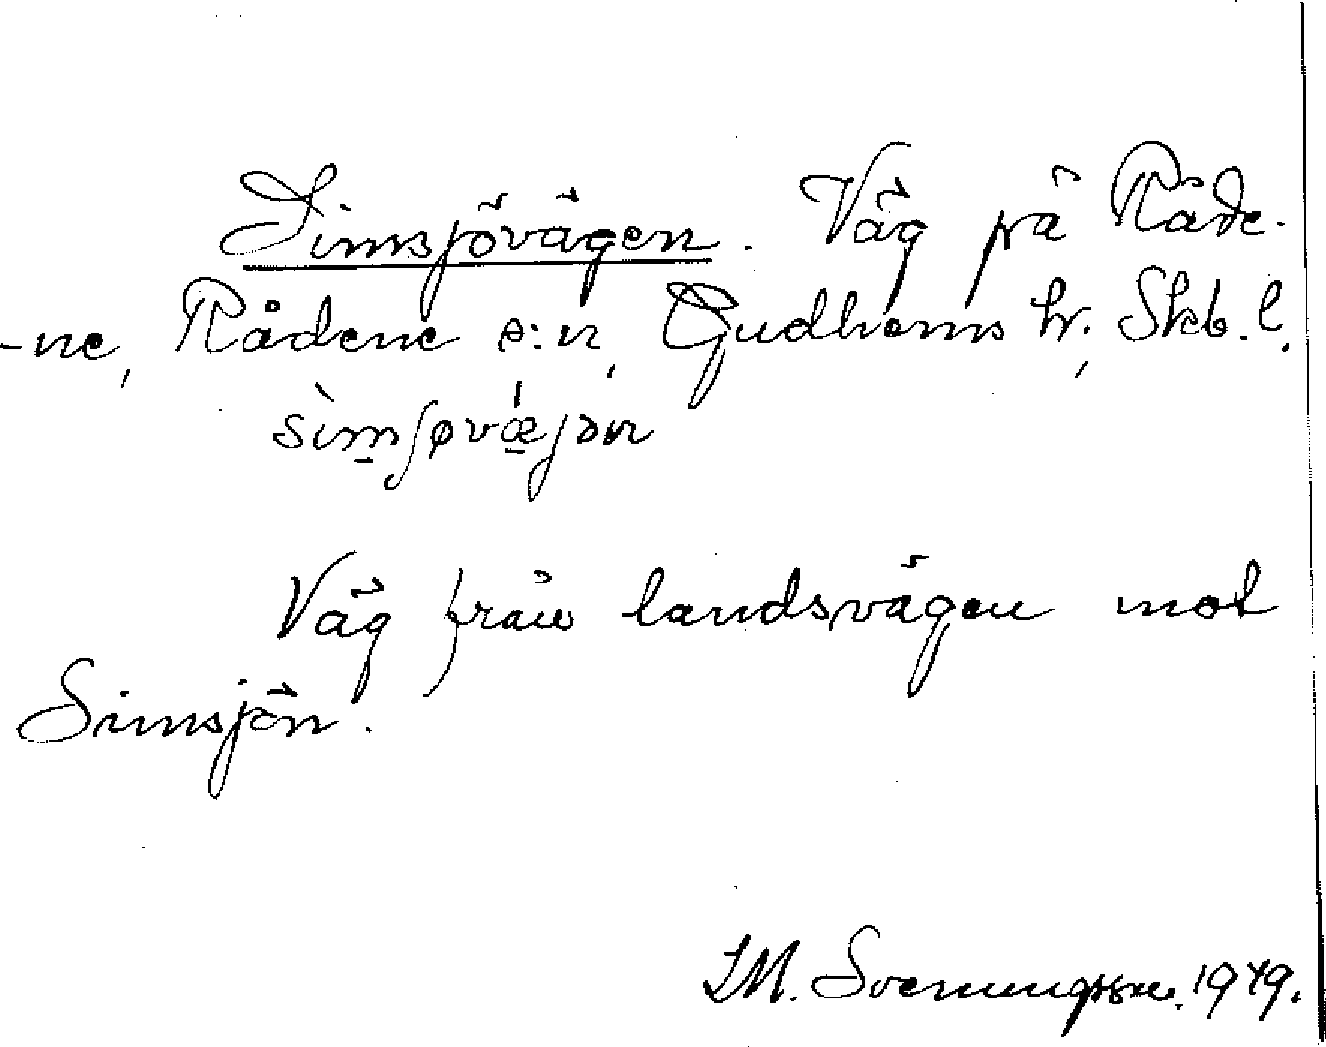 Simsjövägen. Väg på Råde-
-ne, Rådene s:n, Gudhems hr, Skb. l.
sìmʃøvǽjən
Väg från landsvägen mot
Simsjön.
I.M. Svenungsson. 1949.